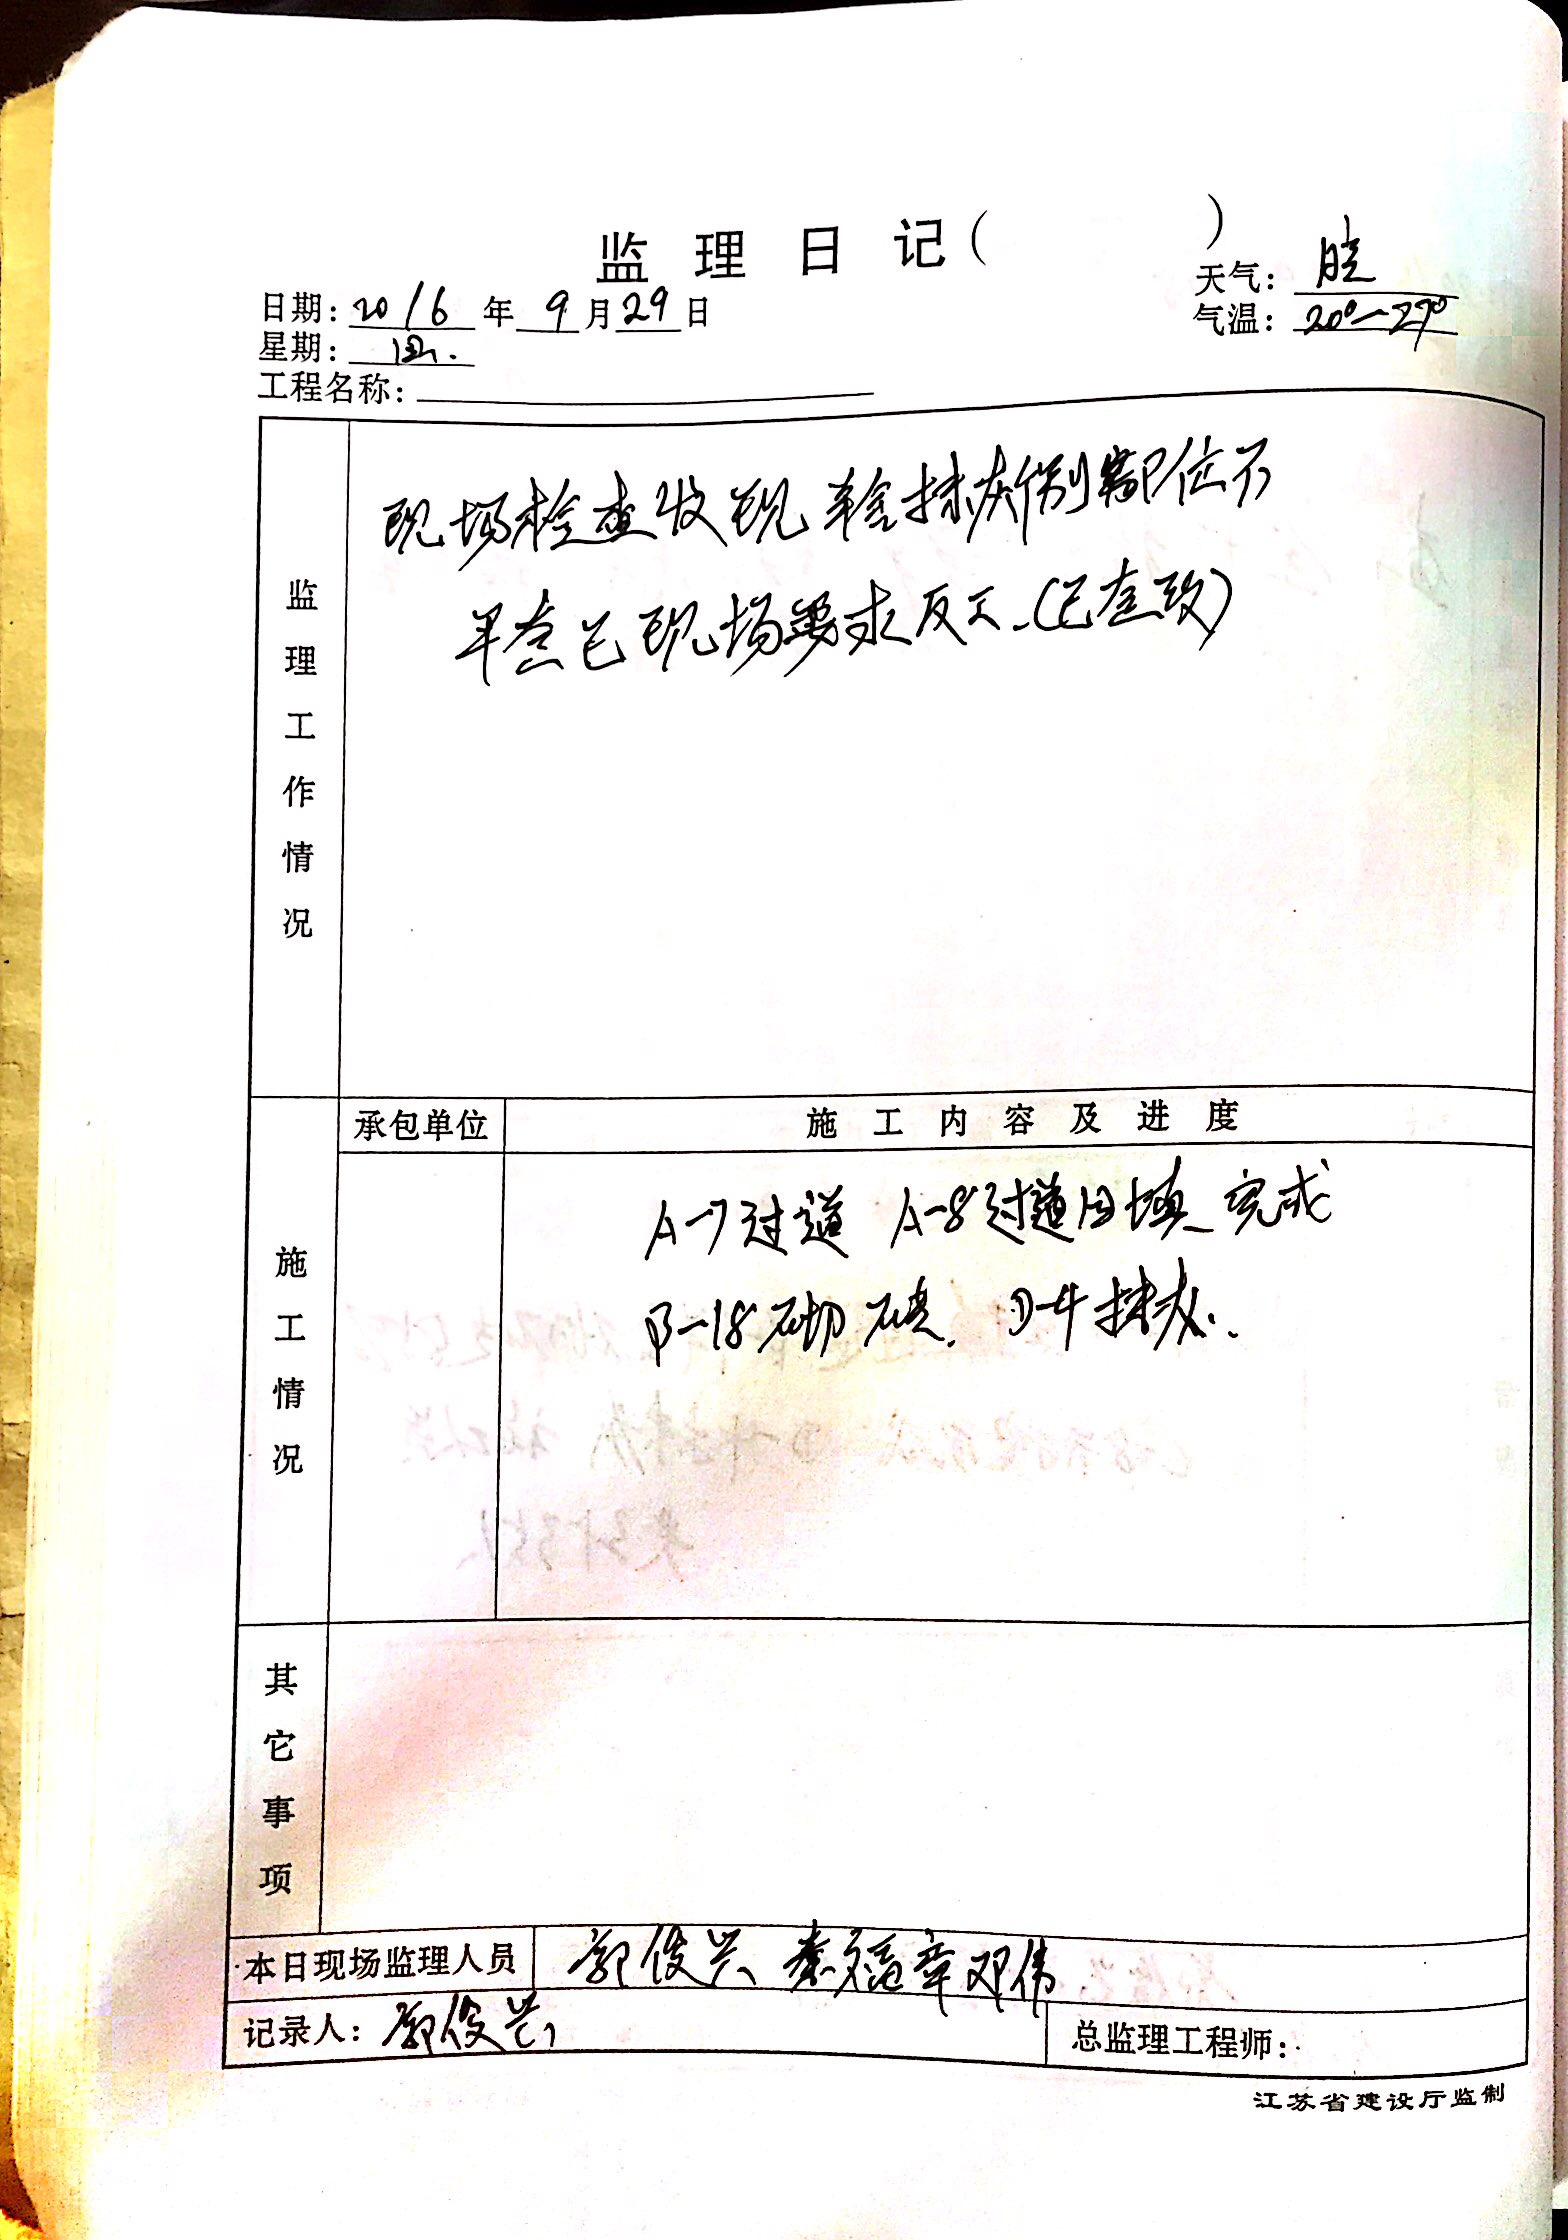 监理日记（ ）
天气：晴
日期：2016年9月29日
气温：20°~27°
星期：四.
工程名称：
监理工作情况
现场检查发现 抹灰个别部位不
平整已现场要求反工.(已整改)
承包单位
施工内容及进度
施工情况
A-7过道 A-8过道回填 完成
B-18砌砖. D-4抹灰.
其它事项
本日现场监理人员 郭俊兴 秦 章 邓伟
记录人：郭俊兴
总监理工程师：
江苏省建设厅监制